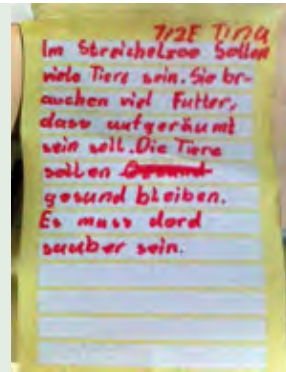 7/2E Tina
Im Streichelzoo sollen
viele Tiere sein. Sie br-
auchen viel Futter,
dass aufgeräumt
sein soll. Die Tiere
sollen
gesund bleiben.
Es muss dord
sauber sein.